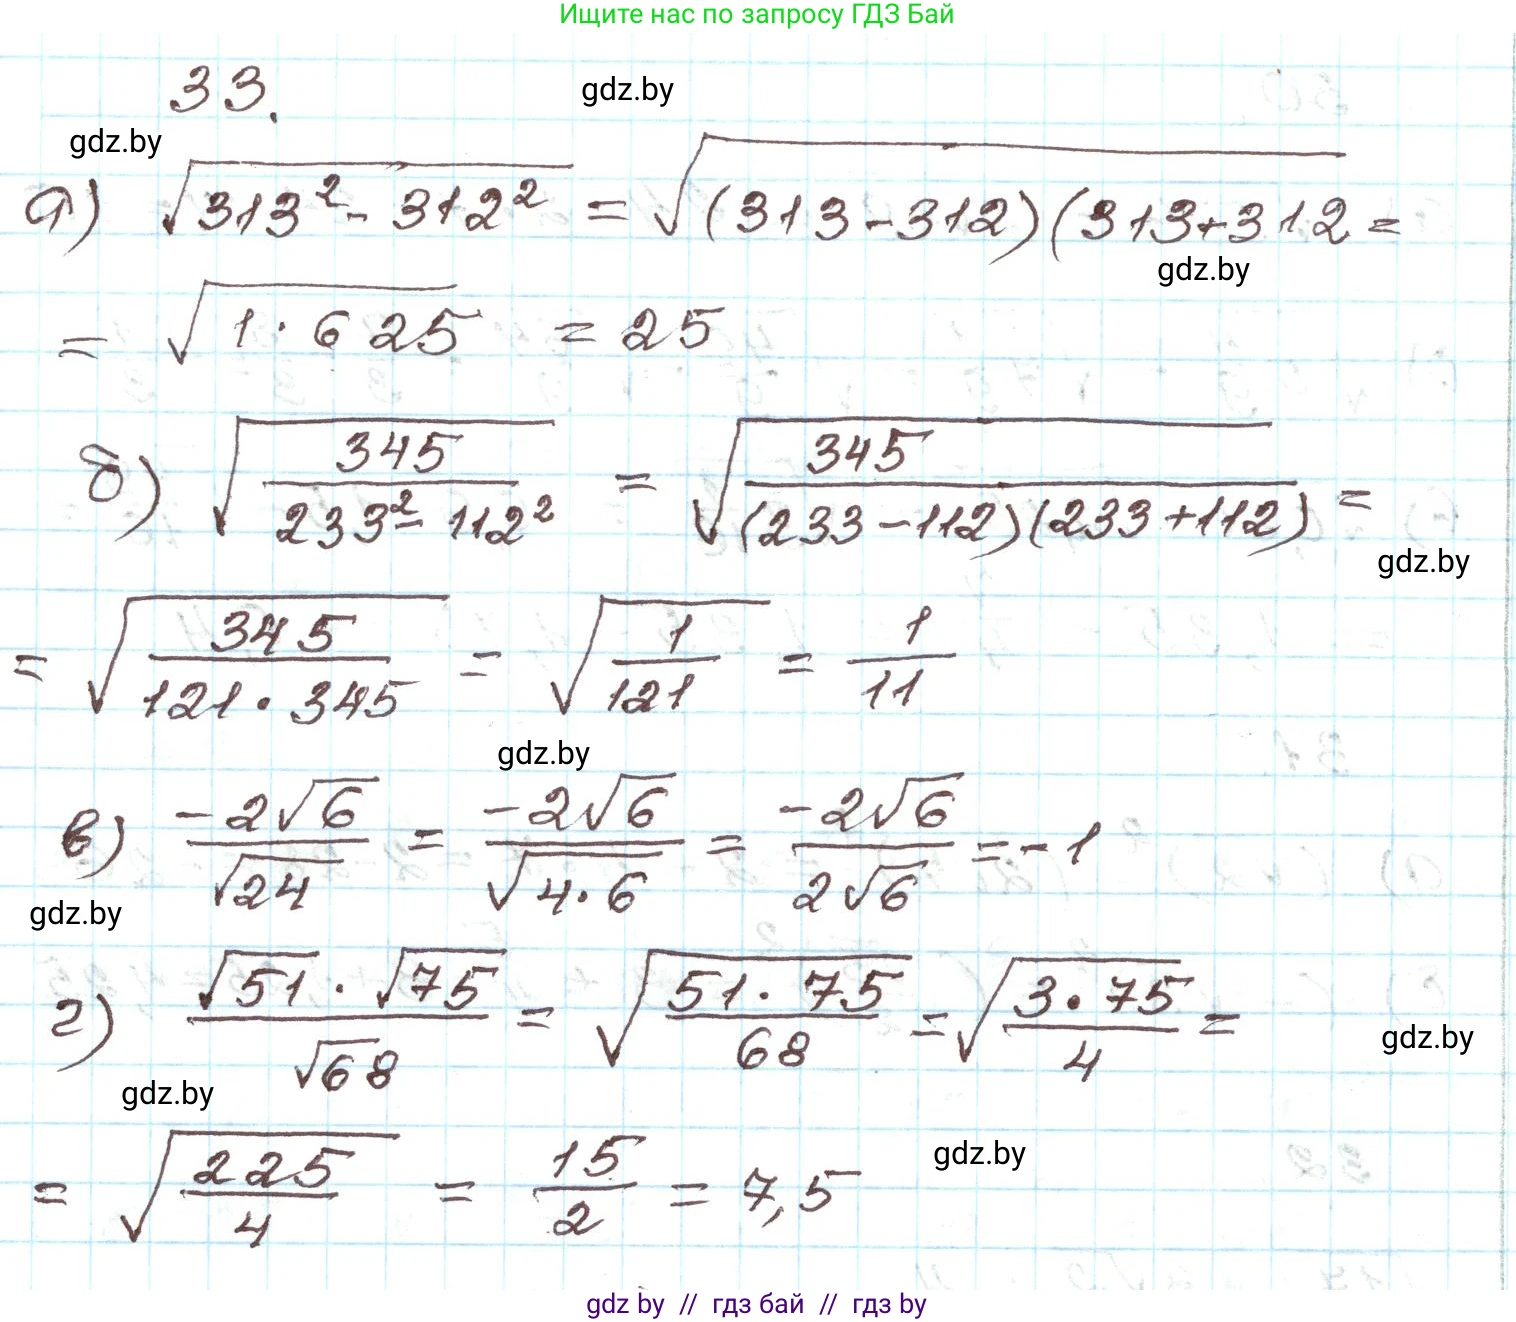 Ищите нас по запросу ГДЗ Бай
33.
gdz.by
gdz.by
а) √(313² - 312²) = √((313-312)(313+312 =
gdz.by
= √(1·625) = 25
б) √(345/(233² - 112²)) = √(345/((233-112)(233+112))) =
gdz.by
= √(345/(121·345)) = √(1/121) = 1/11
gdz.by
в) -2√6/√24 = -2√6/√(4·6) = -2√6/2√6 = -1
gdz.by
г) √51·√75/√68 = √(51·75/68) = √(3·75/4) =
gdz.by
gdz.by
= √(225/4) = 15/2 = 7,5
gdz.by
gdz by // гдз бай // гдз by